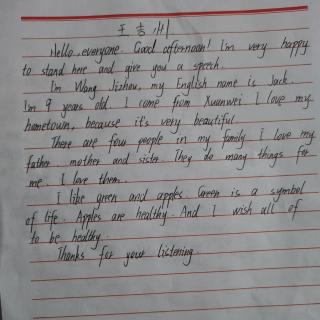 王吉州
Hello, everyone. Good afternoon! I'm very happy
to stand here and give you a speech.
I'm Wang Jizhou, my English name is Jack.
I'm 9 years old. I come from Xuanwei. I love my
hometown, because it's very beautiful.
There are four people in my family. I love my
father, mother and sister. They do many things for
me. I love them.
I like green and apples. Green is a symbol
of life. Apples are healthy. And I wish all of
to be healthy.
Thanks for your listening.